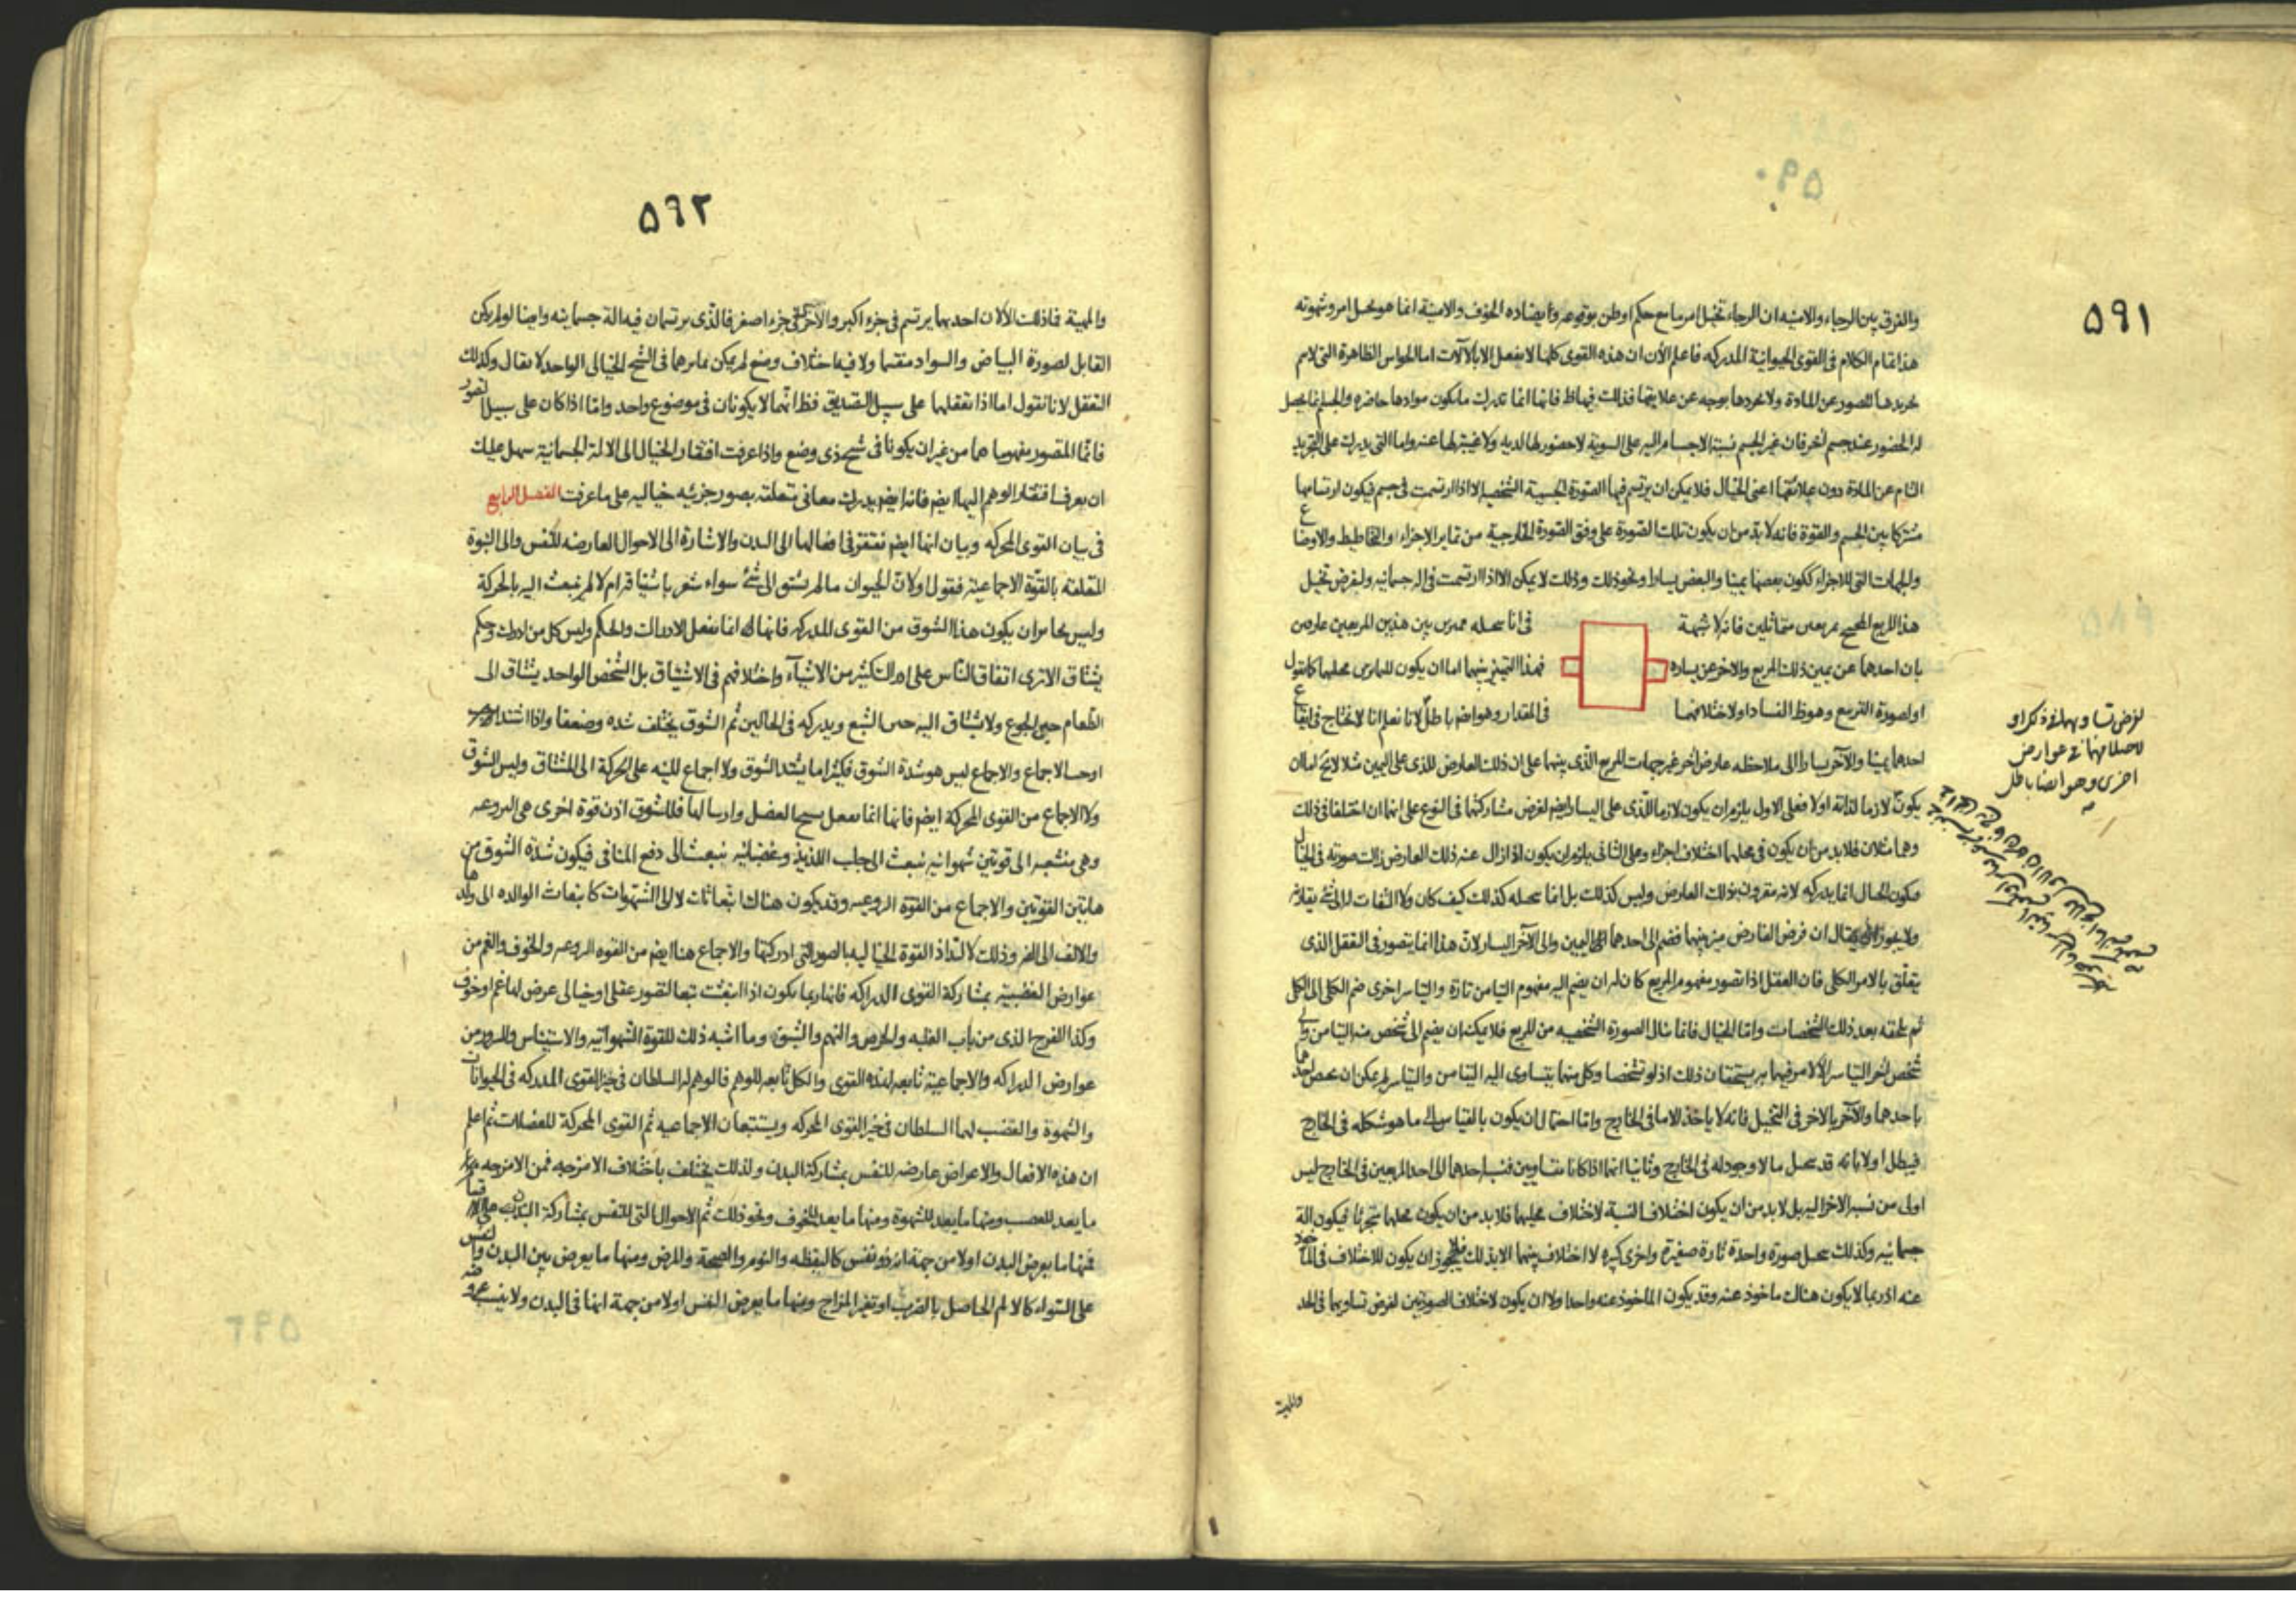 ۵۹۱
والفرق بين الرجاء والامنيه ان الرجاء تخيل امر ما مع حكم او ظن بوقوعه وايضاده الخوف والامنية انما هو تخيل امر وشهوته
هذا تمام الكلام فى القوى الحيوانية المدركه فاعلم الأن ان هذه القوى كلها لا يفعل الا بالآلات اما الحواس الظاهرة التى لا يتم
تجريدها للصور عن المادة ولا تجردها بوجه عن علايقها فذلك فيها ظ فانها انما تدرك ما يكون موادها حاضره والجسم انما يحصل
له الحضور عند جسم اخر فان غير الجسم نسبة الاجسام اليه على السوية لا حضور لها لديه ولا غيبة لها عنه واما التى يدرك على التجريد
التام عن المادة دون علائقها اعنى الخيال فلا يمكن ان يرتسم فيها الصورة الجسمية الشخصية الا اذا ارتسمت فى جسم فيكون ارتسامها
مشتركا بين الجسم والقوة فانه لا بد من ان يكون تلك الصورة على وفق الصورة الخارجية من تمايز الاجزاء والتخاطيط والاوضاع
والجهات التى للاجزاء ككون بعضها يمينا والبعض يسارا ونحو ذلك وذلك لا يمكن الا اذا ارتسمت فى اله جسمانيه ولنفرض تخيل
هذا المربع المجنح بمربعين متماثلين فانه لا شبهة فى انا نتخيله مميزين بين هذين المربعين عارضين
بان احدهما عن يمين ذلك المربع والاخر عن يساره فهذا التميز بينهما اما ان يكون
او لصورة التربيع وهو ظ الفساد او لاختلافهما فى المقدار وهو ايضا باطل لانا نعلم انا لا نحتاج فى ايقاع
احدهما يمينا والآخر يسارا الى ملاحظه عارض اخر غير جهات المربع الذى بينهما على ان ذلك العارض للذى على اليمين مثلا لا يخ اما ان
يكون لازما لذاته او لا فعلى الاول يلزم ان يكون لازما للذى على اليسار ايضم لفرض مشاركتهما فى النوع على انهما ان اختلفا فى ذلك
وهما مثلان فلا بد من ان يكون فى محلهما اختلاف اجزاء وعلى الثانى يلزم ان يكون اذا زال عنه ذلك العارض زالت صورته فى الخيال
فيكون الخيال انما يدركه لانه مقرون بذلك العارض وليس كذلك بل انما نتخيله كذلك كيف كان ولا التفات له الى شئ يقارنه
ولا يجوز ان يقال ان فرض الفارض ميز بينهما فضم الى احدهما اليمين والى الآخر اليسار لان هذا انما يتصور فى التعقل الذى
يتعلق بالامر الكلى فان العقل اذا تصور مفهوم المربع كان له ان يضم اليه مفهوم التيامن تارة والتياسر اخرى ضم الكلى الى الكل
ثم يلحقه بعد ذلك التشخصات واما الخيال فانما ينال الصورة الشخصيه من المربع فلا يمكن ان يضم الى شخص منه التيامن والى
شخص اخر التياسر الا لامر فيهما به يستحقان ذلك اذ لو تشخصا وكل منهما يتساوى اليه التيامن والتياسر لم يمكن ان يخص احدهما
باحدهما والآخر بالاخر فى التخيل فانه لا ياخذ الا ما فى الخارج واما احتمال ان يكون بالقياس الى ما هو شكله فى الخارج
فيبطل اولا بانه قد يتخيل ما لا وجود له فى الخارج وثانيا انهما اذا كانا متساويين فنسبة احدهما الى احد المربعين فى الخارج ليس
اولى من نسبة الاخر اليه بل لا بد من ان يكون اختلاف النسبة لاختلاف محليهما فلا بد من ان يكون محلهما متجزئا فيكون الة
جسمانيه وكذلك يتخيل صورة واحدة تارة صغيرة واخرى كبيره لا اختلاف بينهما الا بذلك فلا يجوز ان يكون للاختلاف فى الماخوذ
عنه اذ ربما لا يكون هناك ماخوذ عنه وقد يكون الماخوذ عنه واحدا ولا ان يكون لاختلاف الصورتين لفرض تساويهما فى الحد
والمهية
لفرض تساويهما فى ذكر او
عوارض
اخرى وهو ايضا باطل
۵۹۲
والمهية فاذا ذلك الا لان احدهما يرتسم فى جزء اكبر والآخر فى جزء اصغر فالذى يرتسمان فيه الة جسمانيه وايضا لو لم يكن
القابل لصورة البياض والسواد منقسما ولا فيه اختلاف وضع لم يمكن تمايزهما فى الشبح الخيالى الواحد لا يقال وكذلك
التعقل لانا نقول اما اذا تعقلهما على سبيل التصديق فظ انهما لا يكونان فى موضوع واحد واما اذا كان على سبيل التصور
فانما المتصور مفهوما هما من غير ان يكونا فى شبح ذى وضع واذا عرفت افتقار الخيال الى الالة الجسمانية سهل عليك
ان تعرف افتقار الوهم اليها ايضم فانه ايضم يدرك معانى متعلقه بصور جزئيه خياليه على ما عرفت الفصل الرابع
فى بيان القوى المحركه وبيان انها ايضم تفتقر فى افعالها الى البدن والاشارة الى الاحوال العارضه للنفس والى النبوة
المتعلقه بالقوة الاجماعية فنقول اولا ان الحيوان ما لم يشتق الى شئ سواء شعر باشتياقه ام لا لم ينبعث اليه بالحركة
وليس يجايز ان يكون هذا الشوق من القوى المدركه فانها انما تفعل الادراك والحكم وليس كل من ادرك وحكم
يشتاق الا ترى اتفاق الناس على ادراك كثير من الاشياء واختلافهم فى الاشتياق بل الشخص الواحد يشتاق الى
الطعام حين الجوع ولا يشتاق اليه حين الشبع ويدركه فى الحالين ثم الشوق يختلف شده وضعفا واذا اشتد
اوجب الاجماع والاجماع ليس هو شدة الشوق فكثيرا ما يشتد الشوق ولا اجماع لليته على الحركة الى المشتاق وليس الشوق
ولا الاجماع من القوى المحركة ايضم فانها انما تفعل تشنج العضل وارسالها فللشوق اذن قوة اخرى هى النزوعيه
وهى منشعبه الى قوتين شهوانيه تنبعث الى جلب اللذيذ وغضبانيه تنبعث الى دفع المنافى فيكون شدة الشوق من
هاتين القوتين والاجماع من القوة النزوعيه وقد يكون هناك انبعاثات لا الى الشهوات كانبعاث الوالده الى ولدها
والالف الى الفه وذلك لالتذاذ القوة الخياليه بالصور التى ادركتها والاجماع هنا ايضم من القوه النزوعيه والخوف والغم من
عوارض الغضبية بمشاركة القوى الدراكه فانها ربما يكون اذا انبعثت تبعا لتصور عقلى او خيالى عرض لها غم او خوف
وكذا الفرح الذى من باب الغلبه والحرص والنهم والشبق وما اشبه ذلك للقوة الشهوانيه والاستيناس والسرور من
عوارض الدراكه والاجماعية تابعه لهذه القوى والكل تابعه للوهم فالوهم له السلطان فى حيز القوى المدركه فى الحيوانات
والشهوة والغضب لهما السلطان فى حيز القوى المحركه ويستتبعان الاجماعيه ثم القوى المحركة للعضلات ثم اعلم
ان هذه الافعال والاعراض عارضه للنفس بمشاركة البدن ولذلك يختلف باختلاف الامزجه فمن الامزجه
ما يعد للغضب ومنها ما يعد للشهوة ومنها ما يعد للخوف ونحو ذلك ثم الاحوال التى للنفس بمشاركة البدن
فمنها ما يعرض البدن اولا من جهة انه ذو نفس كاليقظه والنوم والصحة والمرض ومنها ما يعرض بين البدن والنفس
على السواء كالالم الحاصل بالضرب او تغير المزاج ومنها ما يعرض النفس اولا من جهة انها فى البدن ولا ينسب